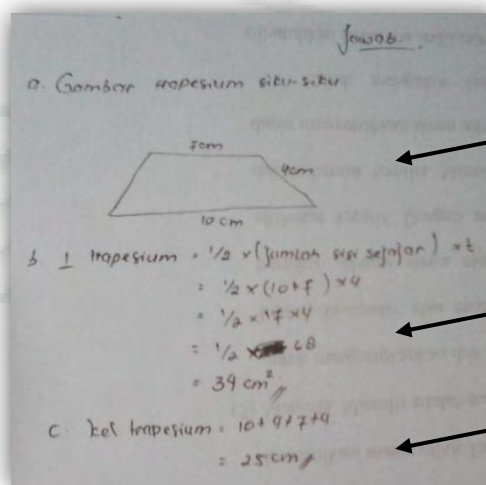 Jawab.
a. Gambar trapesium siku-siku
7cm
4cm
10 cm
b. L trapesium = 1/2 x (jumlah sisi sejajar) x t
= 1/2 x (10+7) x 4
= 1/2 x 17 x 4
= 1/2 x 68
= 34 cm²
c. kel trapesium = 10+4+7+4
= 25 cm